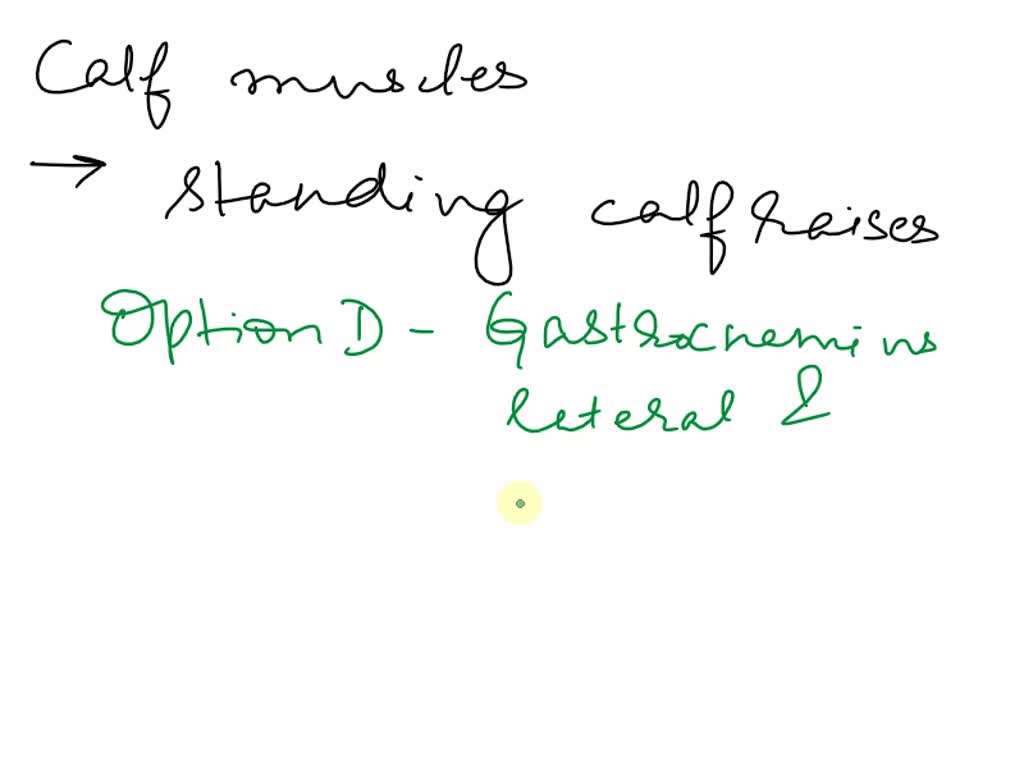 Calf muscles
→ standing calf raises
Option D - Gastrocnemius
leteral &